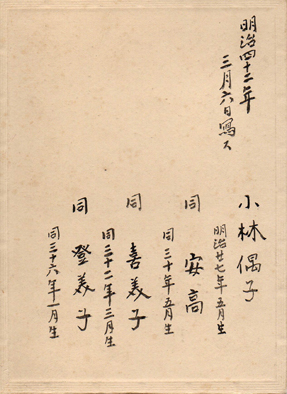 明治四十二年
三月六日寫ス
小林偶子
明治廿七年五月生
同 安高
同三十年五月生
同 喜美子
同三十二年三月生
同 登美子
同三十六年一月生